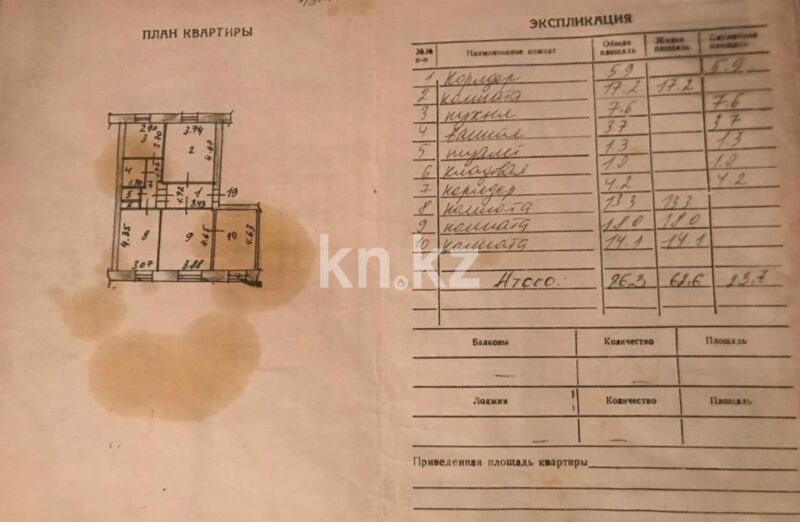 ПЛАН КВАРТИРЫ
2.90
3.74
3
2.70
2
4.60
4
1.72
1
19
3.43
4.35
8
9
4.65
10
4.63
3.07
3.88
ЭКСПЛИКАЦИЯ
№№ п-п Наименование комнат Общая площадь Жилая площадь Служебная площадь
1 коридор 5.9 5.9
2 комната 17.2 17.2
3 кухня 7.6 7.6
4 ванная 3.7 3.7
5 туалет 1.3 1.3
6 кладовая 1.0 1.0
7 коридор 4.2 4.2
8 комната 13.3 13.3
9 комната 18.0 18.0
10 комната 14.1 14.1
Итого: 86.3 62.6 23.7
Балконы Количество Площадь
— —
Лоджии Количество Площадь
— —
Приведенная площадь квартиры
kn.kz